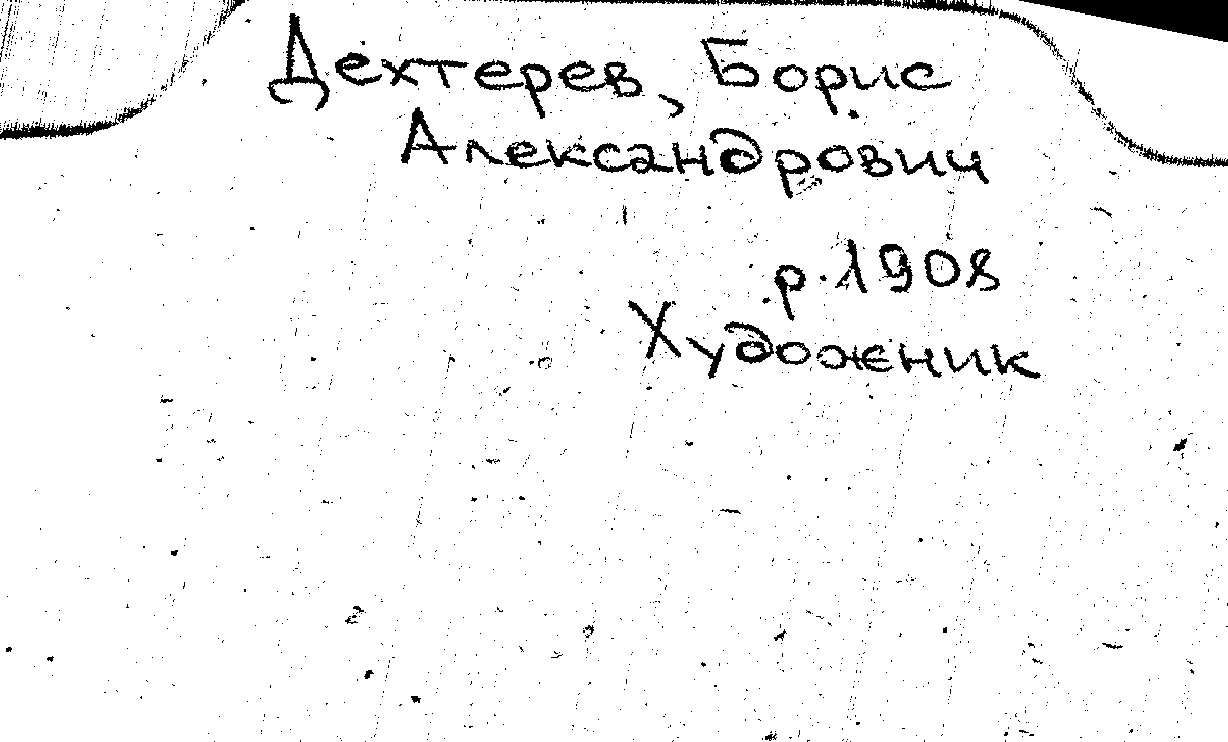 Дехтерев, Борис
Александрович
р. 1908
Художник